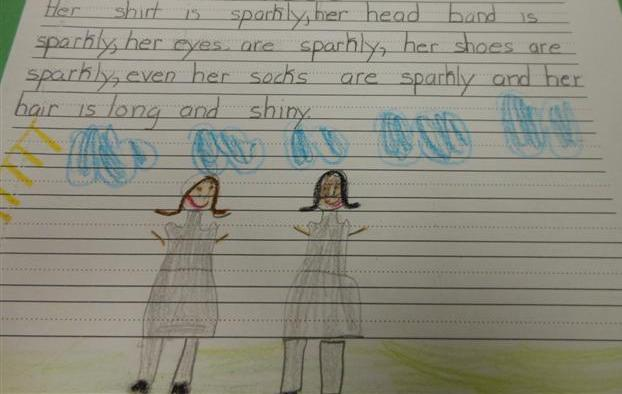 Her shirt is sparkly, her head band is
sparkly, her eyes are sparkly, her shoes are
sparkly, even her socks are sparkly and her
hair is long and shiny.